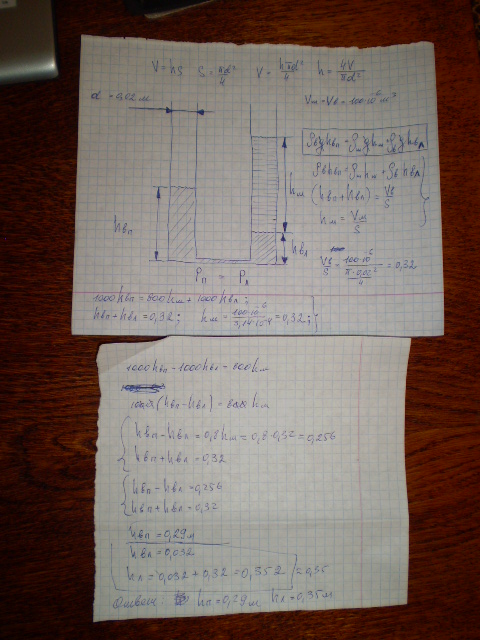 V = hS S = πd²/4 V = hπd²/4 h = 4V/πd²
d = 0,02 м
Vм = Vв = 100·10⁻⁶ м³
ρвghвп = ρмghм + ρвghвл
ρвhвп = ρмhм + ρвhвл
(hвп + hвл) = Vв/S
hм = Vм/S
hм
hвп
hвл
Vв/S = 100·10⁻⁶ / (π·0,02²/4) = 0,32
Pп = Pл
1000hвп = 800hм + 1000hвл;
hвп + hвл = 0,32; hм = 100·10⁻⁶ / 3,14·10⁻⁴ = 0,32;
1000hвп - 1000hвл = 800hм
(hвп - hвл) = hм
hвп - hвл = 0,8hм = 0,8·0,32 = 0,256
hвп + hвл = 0,32
hвп - hвл = 0,256
hвп + hвл = 0,32
hвп = 0,29м
hвл = 0,032
hл = 0,032 + 0,32 = 0,352 ≈ 0,35
Ответ: hп = 0,29м hл = 0,35м